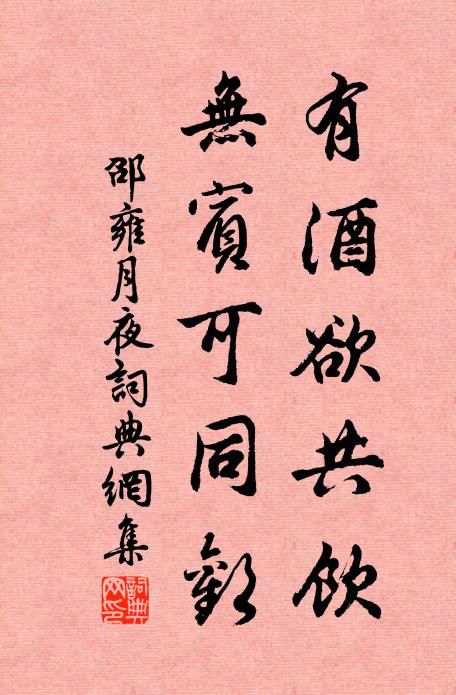 有酒欲共飲
無賓可同歡
邵雍月夜詞典網集
詞典
网印